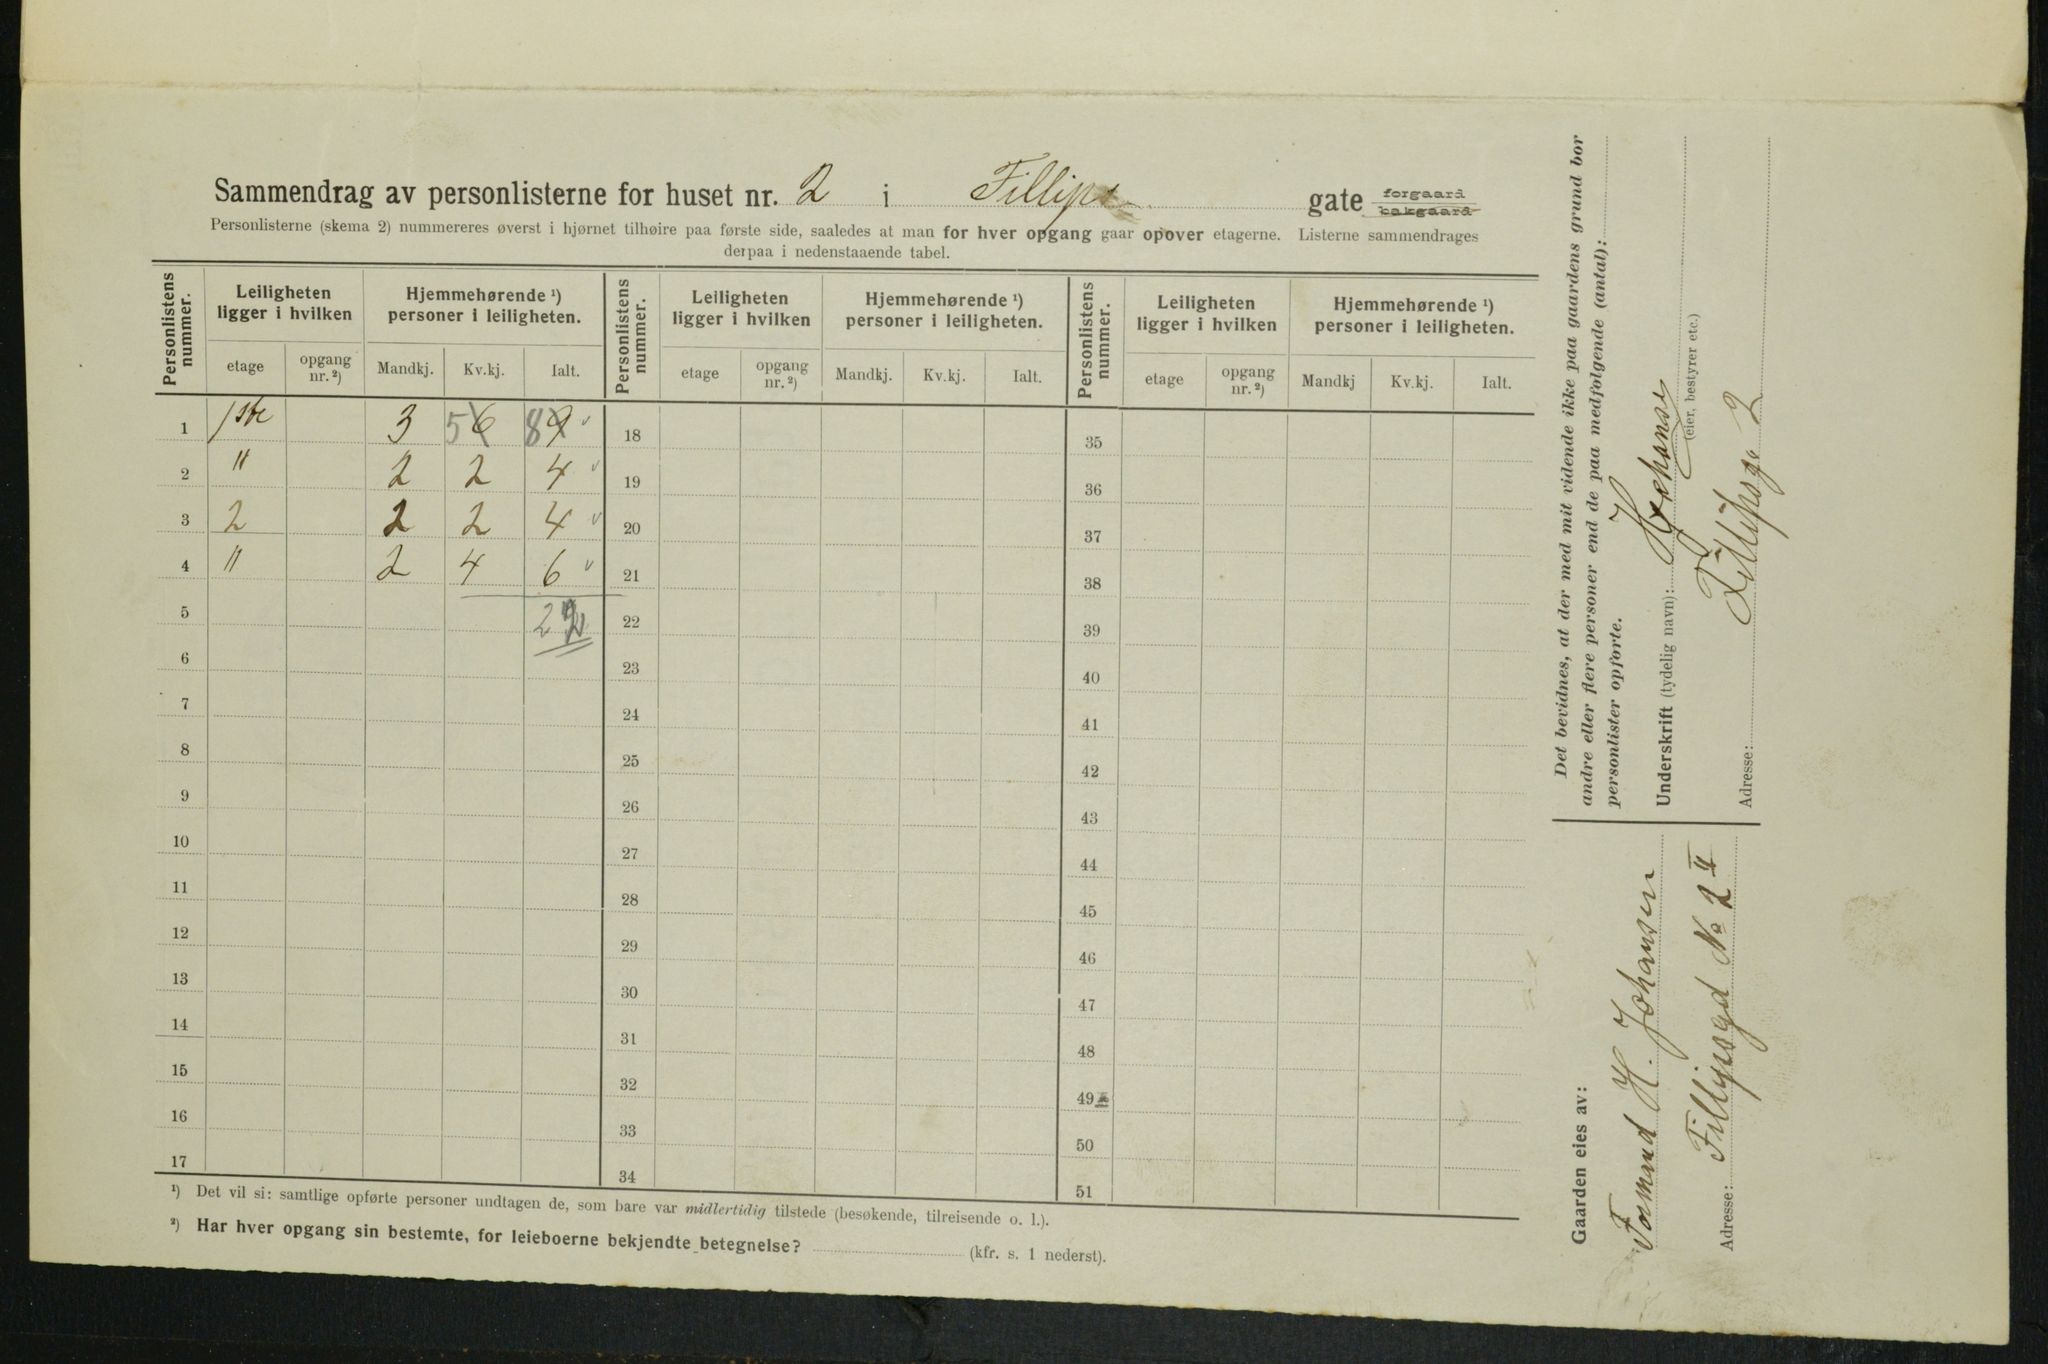 Sammendrag av personlisterne for huset nr. 2 i Fillips gate forgaard bakgaard
Personlisterne (skema 2) nummereres øverst i hjørnet tilhøire paa første side, saaledes at man for hver opgang gaar opover etagerne. Listerne sammendrages
derpaa i nedenstaaende tabel.
Personlistens nummer. Leiligheten ligger i hvilken Hjemmehørende ¹) personer i leiligheten. Personlistens nummer. Leiligheten ligger i hvilken Hjemmehørende ¹) personer i leiligheten. Personlistens nummer. Leiligheten ligger i hvilken Hjemmehørende ¹) personer i leiligheten.
etage opgang nr. ²) Mandkj. Kv.kj. Ialt. etage opgang nr. ²) Mandkj. Kv.kj. Ialt. etage opgang nr. ²) Mandkj Kv.kj. Ialt.
1 1ste 3 5 6 8 9 18 35
2 " 2 2 4 19 36
3 2 2 2 4 20 37
4 " 2 4 6 21 38
5 22 22 39
6 23 40
7 24 41
8 25 42
9 26 43
10 27 44
11 28 45
12 29 46
13 30 47
14 31 48
15 32 49
16 33 50
17 34 51
¹) Det vil si: samtlige opførte personer undtagen de, som bare var midlertidig tilstede (besøkende, tilreisende o. l.).
²) Har hver opgang sin bestemte, for leieboerne bekjendte betegnelse? (kfr. s. 1 nederst).
Det bevidnes, at der med mit vidende ikke paa gaardens grund bor
andre eller flere personer end de paa medfølgende (antal):
personlister opførte.
Underskrift (tydelig navn):
(eier, bestyrer etc.)
Adresse: Fillipsg. 2
Gaarden eies av:
H. Johansen
Adresse: Fillipsgd No 2 II